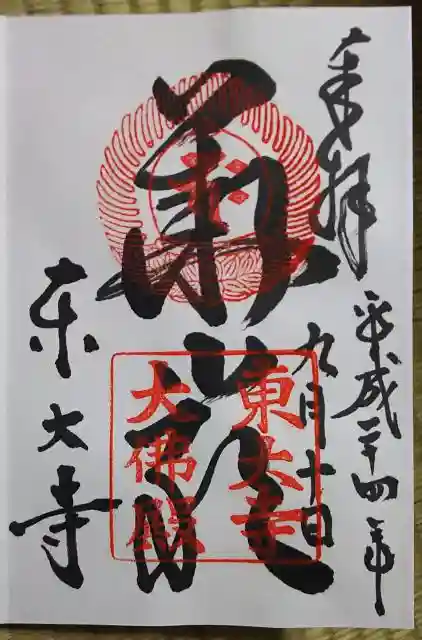 奉拝
平成二十四年
九月十日
華厳
東大寺
大佛殿
東大寺